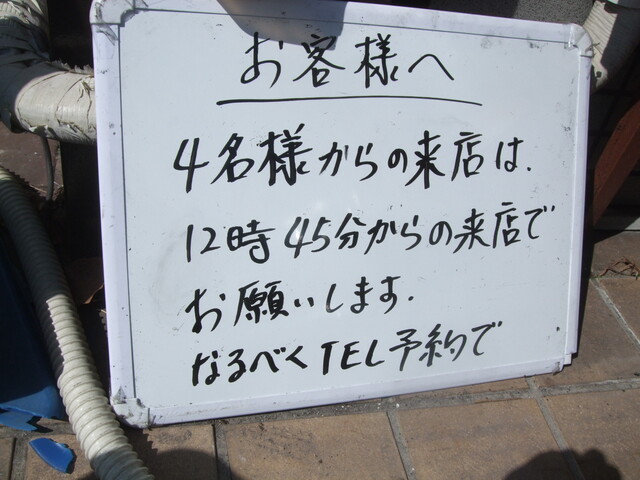 お客様へ
4名様からの来店は、
12時45分からの来店で
お願いします.
なるべくTEL予約で